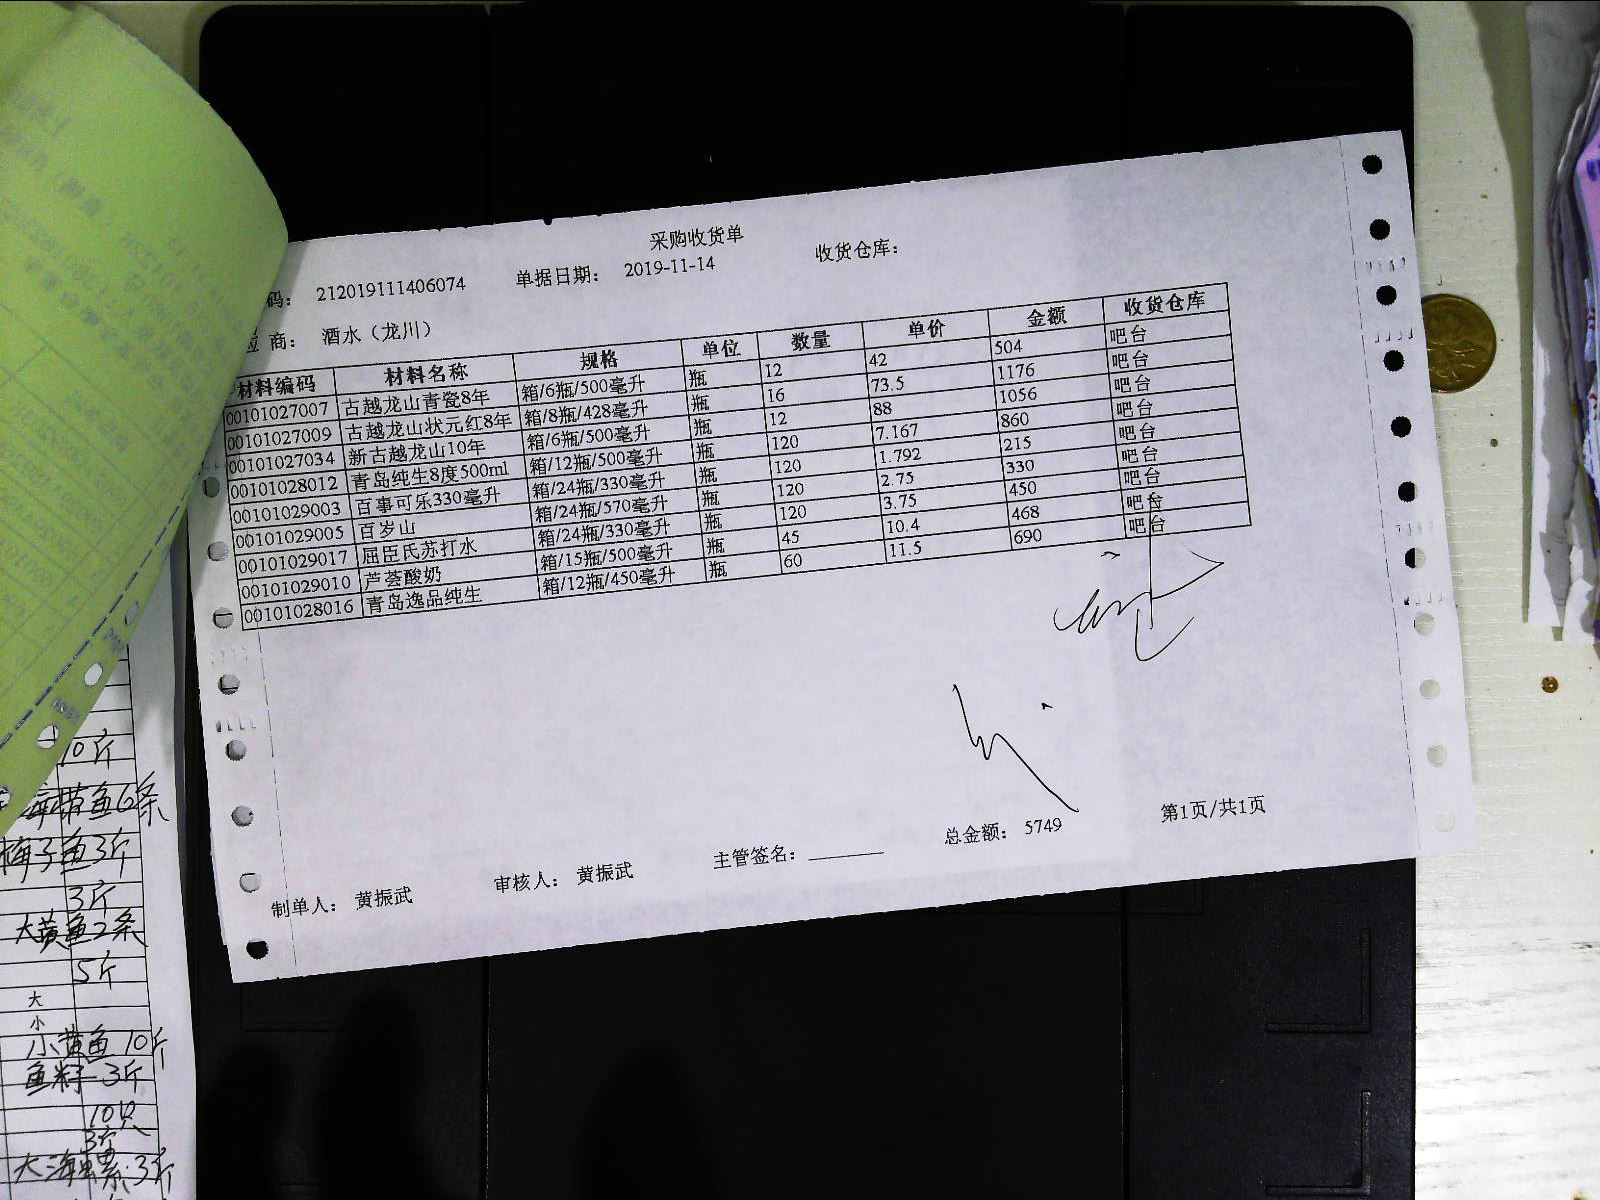 采购收货单
码： 212019111406074 单据日期： 2019-11-14 收货仓库：
应 商： 酒水（龙川）
材料编码 材料名称 规格 单位 数量 单价 金额 收货仓库
00101027007 古越龙山青瓷8年 箱/6瓶/500毫升 瓶 12 42 504 吧台
00101027009 古越龙山状元红8年 箱/8瓶/428毫升 瓶 16 73.5 1176 吧台
00101027034 新古越龙山10年 箱/6瓶/500毫升 瓶 12 88 1056 吧台
00101028012 青岛纯生8度500ml 箱/12瓶/500毫升 瓶 120 7.167 860 吧台
00101029003 百事可乐330毫升 箱/24瓶/330毫升 瓶 120 1.792 215 吧台
00101029005 百岁山 箱/24瓶/570毫升 瓶 120 2.75 330 吧台
00101029017 屈臣氏苏打水 箱/24瓶/330毫升 瓶 120 3.75 450 吧台
00101029010 芦荟酸奶 箱/15瓶/500毫升 瓶 45 10.4 468 吧台
00101028016 青岛逸品纯生 箱/12瓶/450毫升 瓶 60 11.5 690 吧台
制单人： 黄振武 审核人： 黄振武 主管签名： 总金额： 5749 第1页/共1页
10斤
带鱼6条
梅子鱼3斤
3斤
大黄鱼2条
5斤
大
小
小黄鱼10斤
鱼籽 3斤
10只
3斤
大海螺 3斤